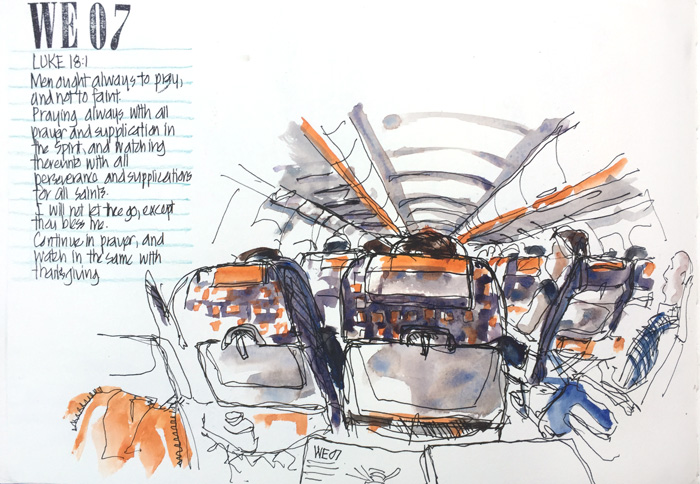 WE 07
LUKE 18:1
Men ought always to pray,
and not to faint.
Praying always with all
prayer and supplication in
the Spirit, and watching
thereunto with all
perseverance and supplications
for all saints.
I will not let thee go, except
thou bless me.
Continue in prayer, and
watch in the same with
thanksgiving
WE07